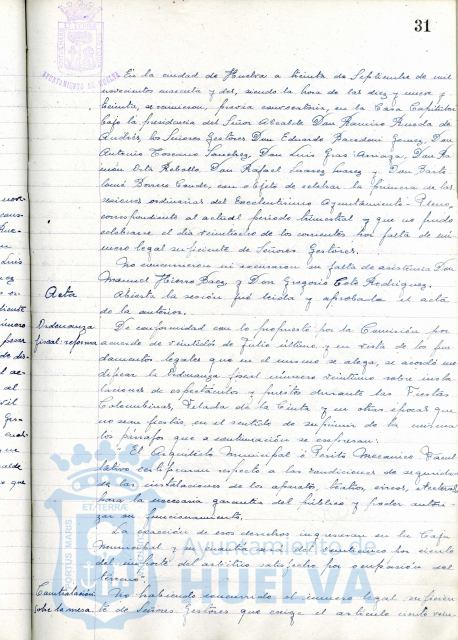 31
AYUNTAMIENTO DE HUELVA
En la ciudad de Huelva a treinta de Septiembre de mil
novecientos cuarenta y dos, siendo la hora de las diez y nueve y
treinta, se reunieron, previa convocatoria, en la Casa Capitular
bajo la presidencia del Señor Alcalde Don Ramiro Rueda de
Andrés, los Señores Gestores Don Eduardo Gomez, Don
Antonio Toscano Sanchez, Don Luis Gras Arnaga, Don Ra
món Orta Rebollo, Don Rafael Suarez Suarez y Don Barto
lomé Borrero Conde, con objeto de celebrar la primera de las
sesiones ordinarias del Excelentisimo Ayuntamiento Pleno,
correspondiente al actual periodo trimestral y que no pudo
celebrarse el día veintiocho de los corrientes por falta de nú
mero legal suficiente de Señores Gestores.
No concurrieron ni excusaron su falta de asistencia Don
Manuel Hierro Baez y Don Gregorio Coto Rodriguez.
Acta
Abierta la sesión fué leida y aprobada el acta
de la anterior.
Ordenanza
fiscal: reforma
De conformidad con lo propuesto por la Comisión por
acuerdo de veintidós de Julio último y en vista de los fun
damentos legales que en el mismo se alega, se acordó mo
dificar la Ordenanza fiscal número veintiuno sobre insta
laciones de espectáculos y puestos durante las Fiestas
Colombinas, Velada de la Cinta y en otras épocas que
no sean fiestas, en el sentido de suprimir de la misma
los párrafos que a continuación se expresan:
"El Arquitecto Municipal ó Perito Mecánico Facul
tativo certificaran respecto a las condiciones de seguridad
de las instalaciones de los aparatos, teatros, circos, etcétera,
para la necesaria garantia del público y poder autori
zar su funcionamiento.
La exacción de esos derechos ingresaran en la Caja
Municipal y durante el por ciento
del importe del arbitrio satisfecho por ocupación del
terreno".
Contratación
sobre la mesa
No habiendo concurrido el número legal suficien
te de Señores Gestores que exige el artículo ciento vein
ET TERRA
PORTUS MARIS
Ayuntamiento de
HUELVA